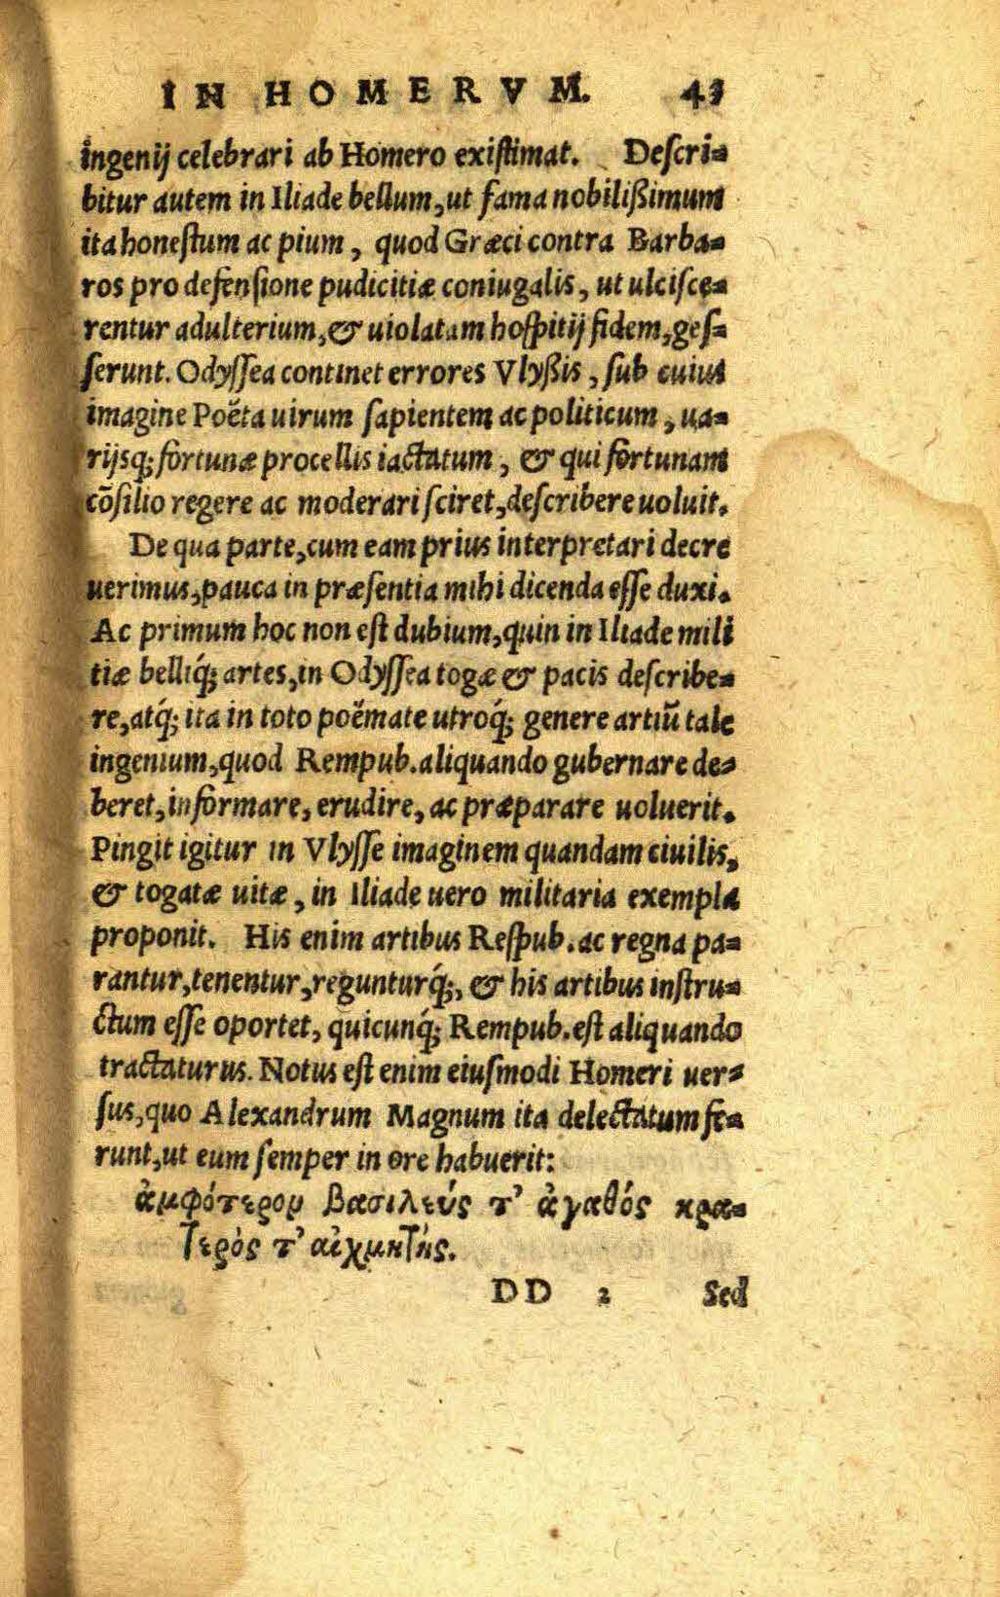 IN HOMERVM. 43
ingenij celebrari ab Homero existimat. Descri-
bitur autem in Iliade bellum, ut fama nobilißimum
ita honestum ac pium, quod Græci contra Barba-
ros pro defensione pudicitiæ coniugalis, ut ulcisce-
rentur adulterium, & uiolatam hospitij fidem, ges-
serunt. Odyssea continet errores Vlyßis, sub cuius
imagine Poëta uirum sapientem ac politicum, ua-
rijsq; fortunæ procellis iactatum, & qui fortunam
cōsilio regere ac moderari sciret, describere uoluit.
De qua parte, cum eam prius interpretari decre
uerimus, pauca in præsentia mihi dicenda esse duxi.
Ac primum hoc non est dubium, quin in Iliade mili
tiæ belliq́; artes, in Odyssea togæ & pacis describe-
re, atq́; ita in toto poëmate utroq́; genere artiū tale
ingenium, quod Rempub. aliquando gubernare de-
beret, informare, erudire, ac præparare uoluerit.
Pingit igitur in Vlysse imaginem quandam ciuilis,
& togatæ uitæ, in Iliade uero militaria exempla
proponit. His enim artibus Respub. ac regna pa-
rantur, tenentur, regunturq́;, & his artibus instru-
ctum esse oportet, quicunq́; Rempub. est aliquando
tractaturus. Notus est enim eiusmodi Homeri uer-
sus, quo Alexandrum Magnum ita delectatum fe-
runt, ut eum semper in ore habuerit:
ἀμφότερου βασιλεύς τ' ἀγαθός κρα-
τερός τ' αἰχμητής.
DD 2 Sed